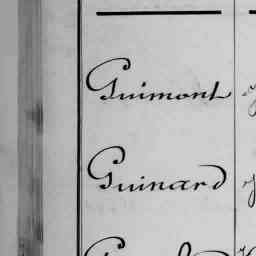 Guimont
Guinard